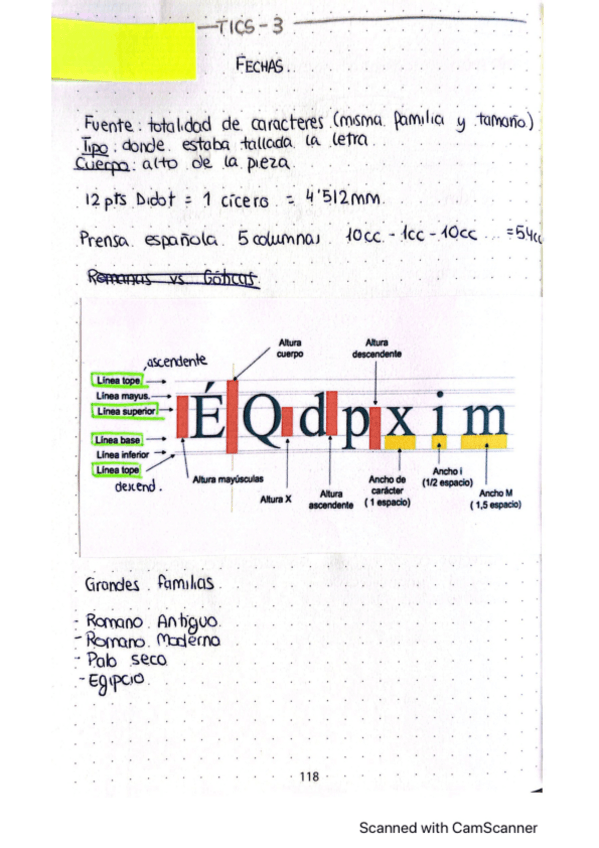 TICS - 3
FECHAS.
Fuente: totalidad de caracteres (misma familia y tamaño)
Tipo: donde estaba tallada la letra
Cuerpo: alto de la pieza
12 pts Didot = 1 cícero = 4'512mm.
Prensa española. 5 columnas 10cc - 1cc - 10cc ... = 54cc
Romanas vs Góticas
Altura cuerpo
Altura descendente
ascendente
Línea tope
Línea mayus.
Línea superior
Línea base
Línea inferior
Línea tope
descend.
É Q d p x i m
Altura mayúsculas
Altura X
Altura ascendente
Ancho de carácter (1 espacio)
Ancho i (1/2 espacio)
Ancho M (1,5 espacio)
Grandes familias
- Romano Antiguo.
- Romano Moderno
- Palo seco
- Egipcio.
118
Scanned with CamScanner